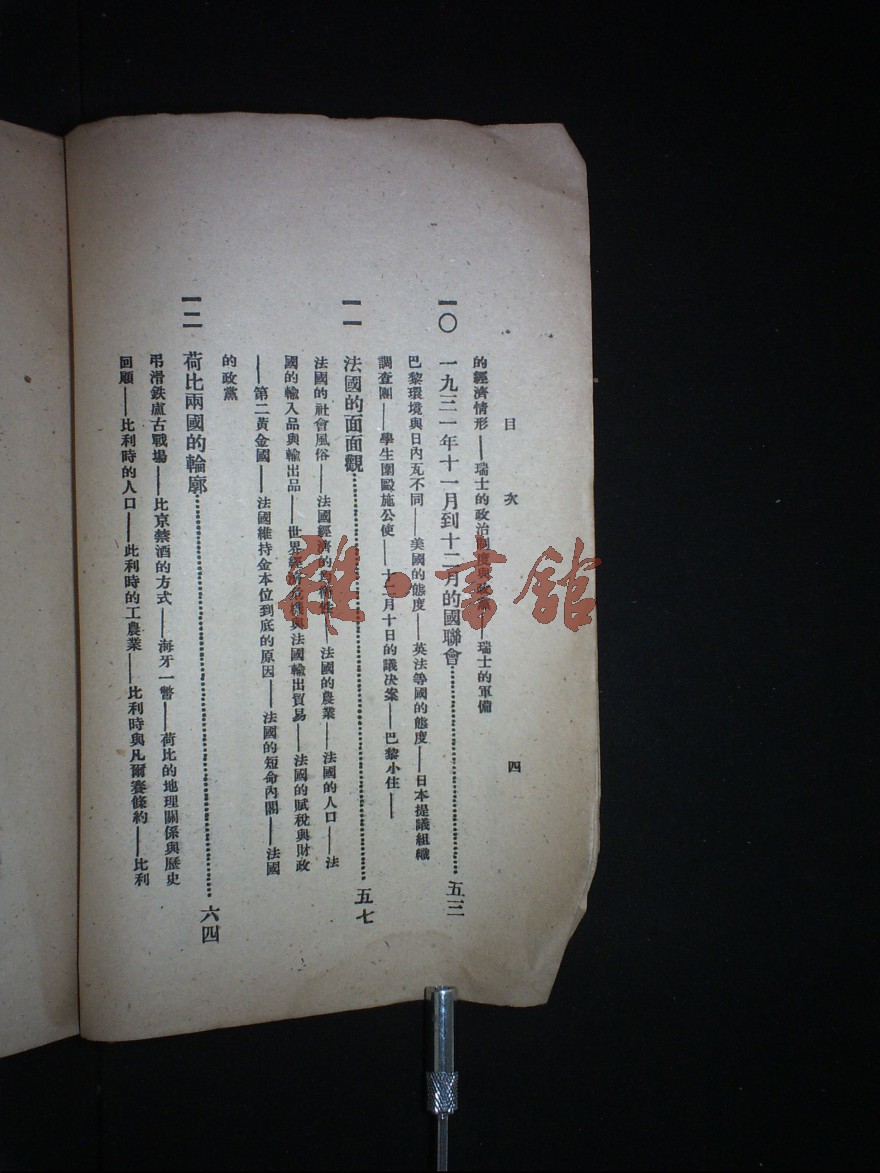 目次
四
的經濟情形——瑞士的政治制度與政黨——瑞士的軍備
一〇 一九三一年十一月到十二月的國聯會……五三
巴黎環境與日內瓦不同——美國的態度——英法等國的態度——日本提議組織
調查團——學生圍毆施公使——十二月十日的議決案——巴黎小住——
一一 法國的面面觀……五七
法國的社會風俗——法國經濟的——法國的農業——法國的人口——法
國的輸入品與輸出品——世界經濟與法國輸出貿易——法國的賦稅與財政
——第二黃金國——法國維持金本位到底的原因——法國的短命內閣——法國
的政黨
一二 荷比兩國的輪廓……六四
弔滑鉄盧古戰場——比京禁酒的方式——海牙一瞥——荷比的地理關係與歷史
回顧——比利時的人口——此利時的工農業——比利時與凡爾賽條約——比利
雜·書館